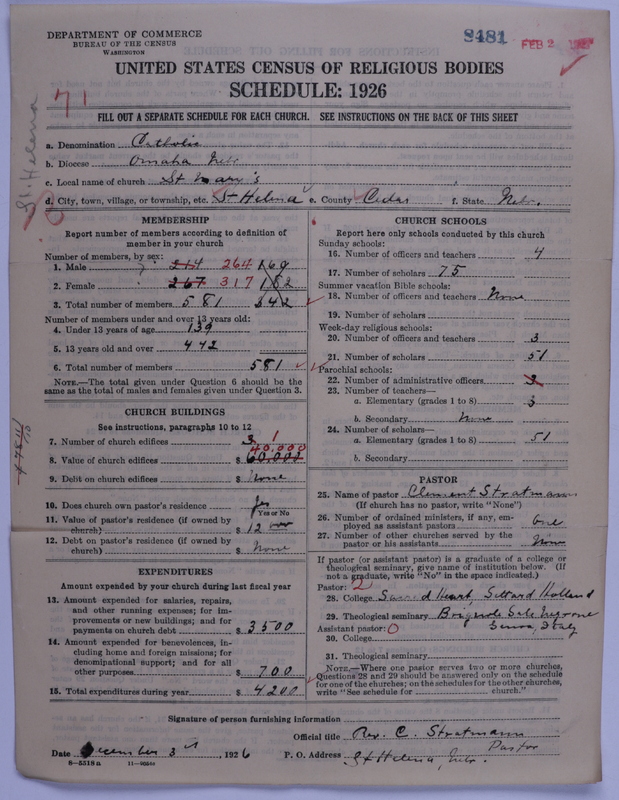 DEPARTMENT OF COMMERCE
BUREAU OF THE CENSUS
WASHINGTON
8481
FEB 2 1927
UNITED STATES CENSUS OF RELIGIOUS BODIES
SCHEDULE: 1926
71
St. Helena
FILL OUT A SEPARATE SCHEDULE FOR EACH CHURCH. SEE INSTRUCTIONS ON THE BACK OF THIS SHEET
a. Denomination Catholic
b. Diocese Omaha Nebr
c. Local name of church St Mary's
d. City, town, village, or township, etc. St Helena e. County Cedar f. State Nebr.
MEMBERSHIP
Report number of members according to definition of
member in your church
Number of members, by sex:
1. Male 214 264 169
2. Female 267 317 182
3. Total number of members 581 342
Number of members under and over 13 years old:
4. Under 13 years of age 139
5. 13 years old and over 442
6. Total number of members 581
NOTE.—The total given under Question 6 should be the
same as the total of males and females given under Question 3.
CHURCH BUILDINGS
See instructions, paragraphs 10 to 12
7. Number of church edifices 3 1
40,000
8. Value of church edifices $ 60,000
9. Debt on church edifices $ None
10. Does church own pastor's residence Yes
Yes or No
11. Value of pastor's residence (if owned by
church) $ 12 000
12. Debt on pastor's residence (if owned by
church) $ None
EXPENDITURES
Amount expended by your church during last fiscal year
13. Amount expended for salaries, repairs,
and other running expenses; for im-
provements or new buildings; and for
payments on church debt $ 3500
14. Amount expended for benevolences, in-
cluding home and foreign missions; for
denominational support; and for all
other purposes $ 700
15. Total expenditures during year $ 4200
CHURCH SCHOOLS
Report here only schools conducted by this church
Sunday schools:
16. Number of officers and teachers 4
17. Number of scholars 75
Summer vacation Bible schools:
18. Number of officers and teachers None
19. Number of scholars
Week-day religious schools:
20. Number of officers and teachers 3
21. Number of scholars 51
Parochial schools:
22. Number of administrative officers 3
23. Number of teachers—
a. Elementary (grades 1 to 8) 3
b. Secondary None
24. Number of scholars—
a. Elementary (grades 1 to 8) 51
b. Secondary
PASTOR
25. Name of pastor Clement Stratmann
(If church has no pastor, write "None")
26. Number of ordained ministers, if any, em-
ployed as assistant pastors one
27. Number of other churches served by the
pastor or his assistants None
If pastor (or assistant pastor) is a graduate of a college or
theological seminary, give name of institution below. (If
not a graduate, write "No" in the space indicated.)
Pastor: 2
28. College Sacred Heart, Sittard Holland
29. Theological seminary Brignole Sale Negrone
Assistant pastor: 0 Genoa, Italy
30. College
31. Theological seminary
NOTE.—Where one pastor serves two or more churches,
Questions 28 and 29 should be answered only on the schedule
for one of the churches; on the schedules for the other churches,
write "See schedule for church."
Signature of person furnishing information
Official title Rev. C. Stratmann
Pastor
Date December 3rd, 1926 P. O. Address St Helena, Nebr.
8—5518a 11—9056